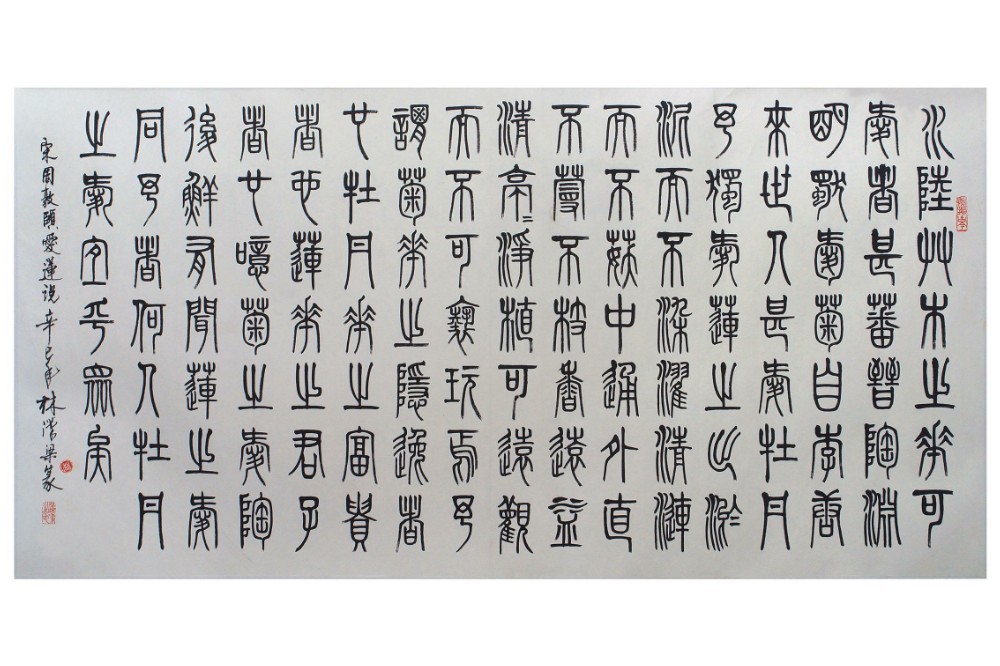 水陸艸木之華可
愛者甚蕃晉陶淵
明獨愛菊自李唐
來世人甚愛牡丹
予獨愛蓮之出淤
泥而不染濯清漣
而不妖中通外直
不蔓不枝香遠益
清亭〻淨植可遠觀
而不可褻玩焉予
謂菊華之隱逸者
也牡丹華之富貴
者也蓮華之君子
者也噫菊之愛陶
後鮮有聞蓮之愛
同予者何人牡丹
之愛宜乎眾矣
宋周敦頤愛蓮説辛巳林梁篆